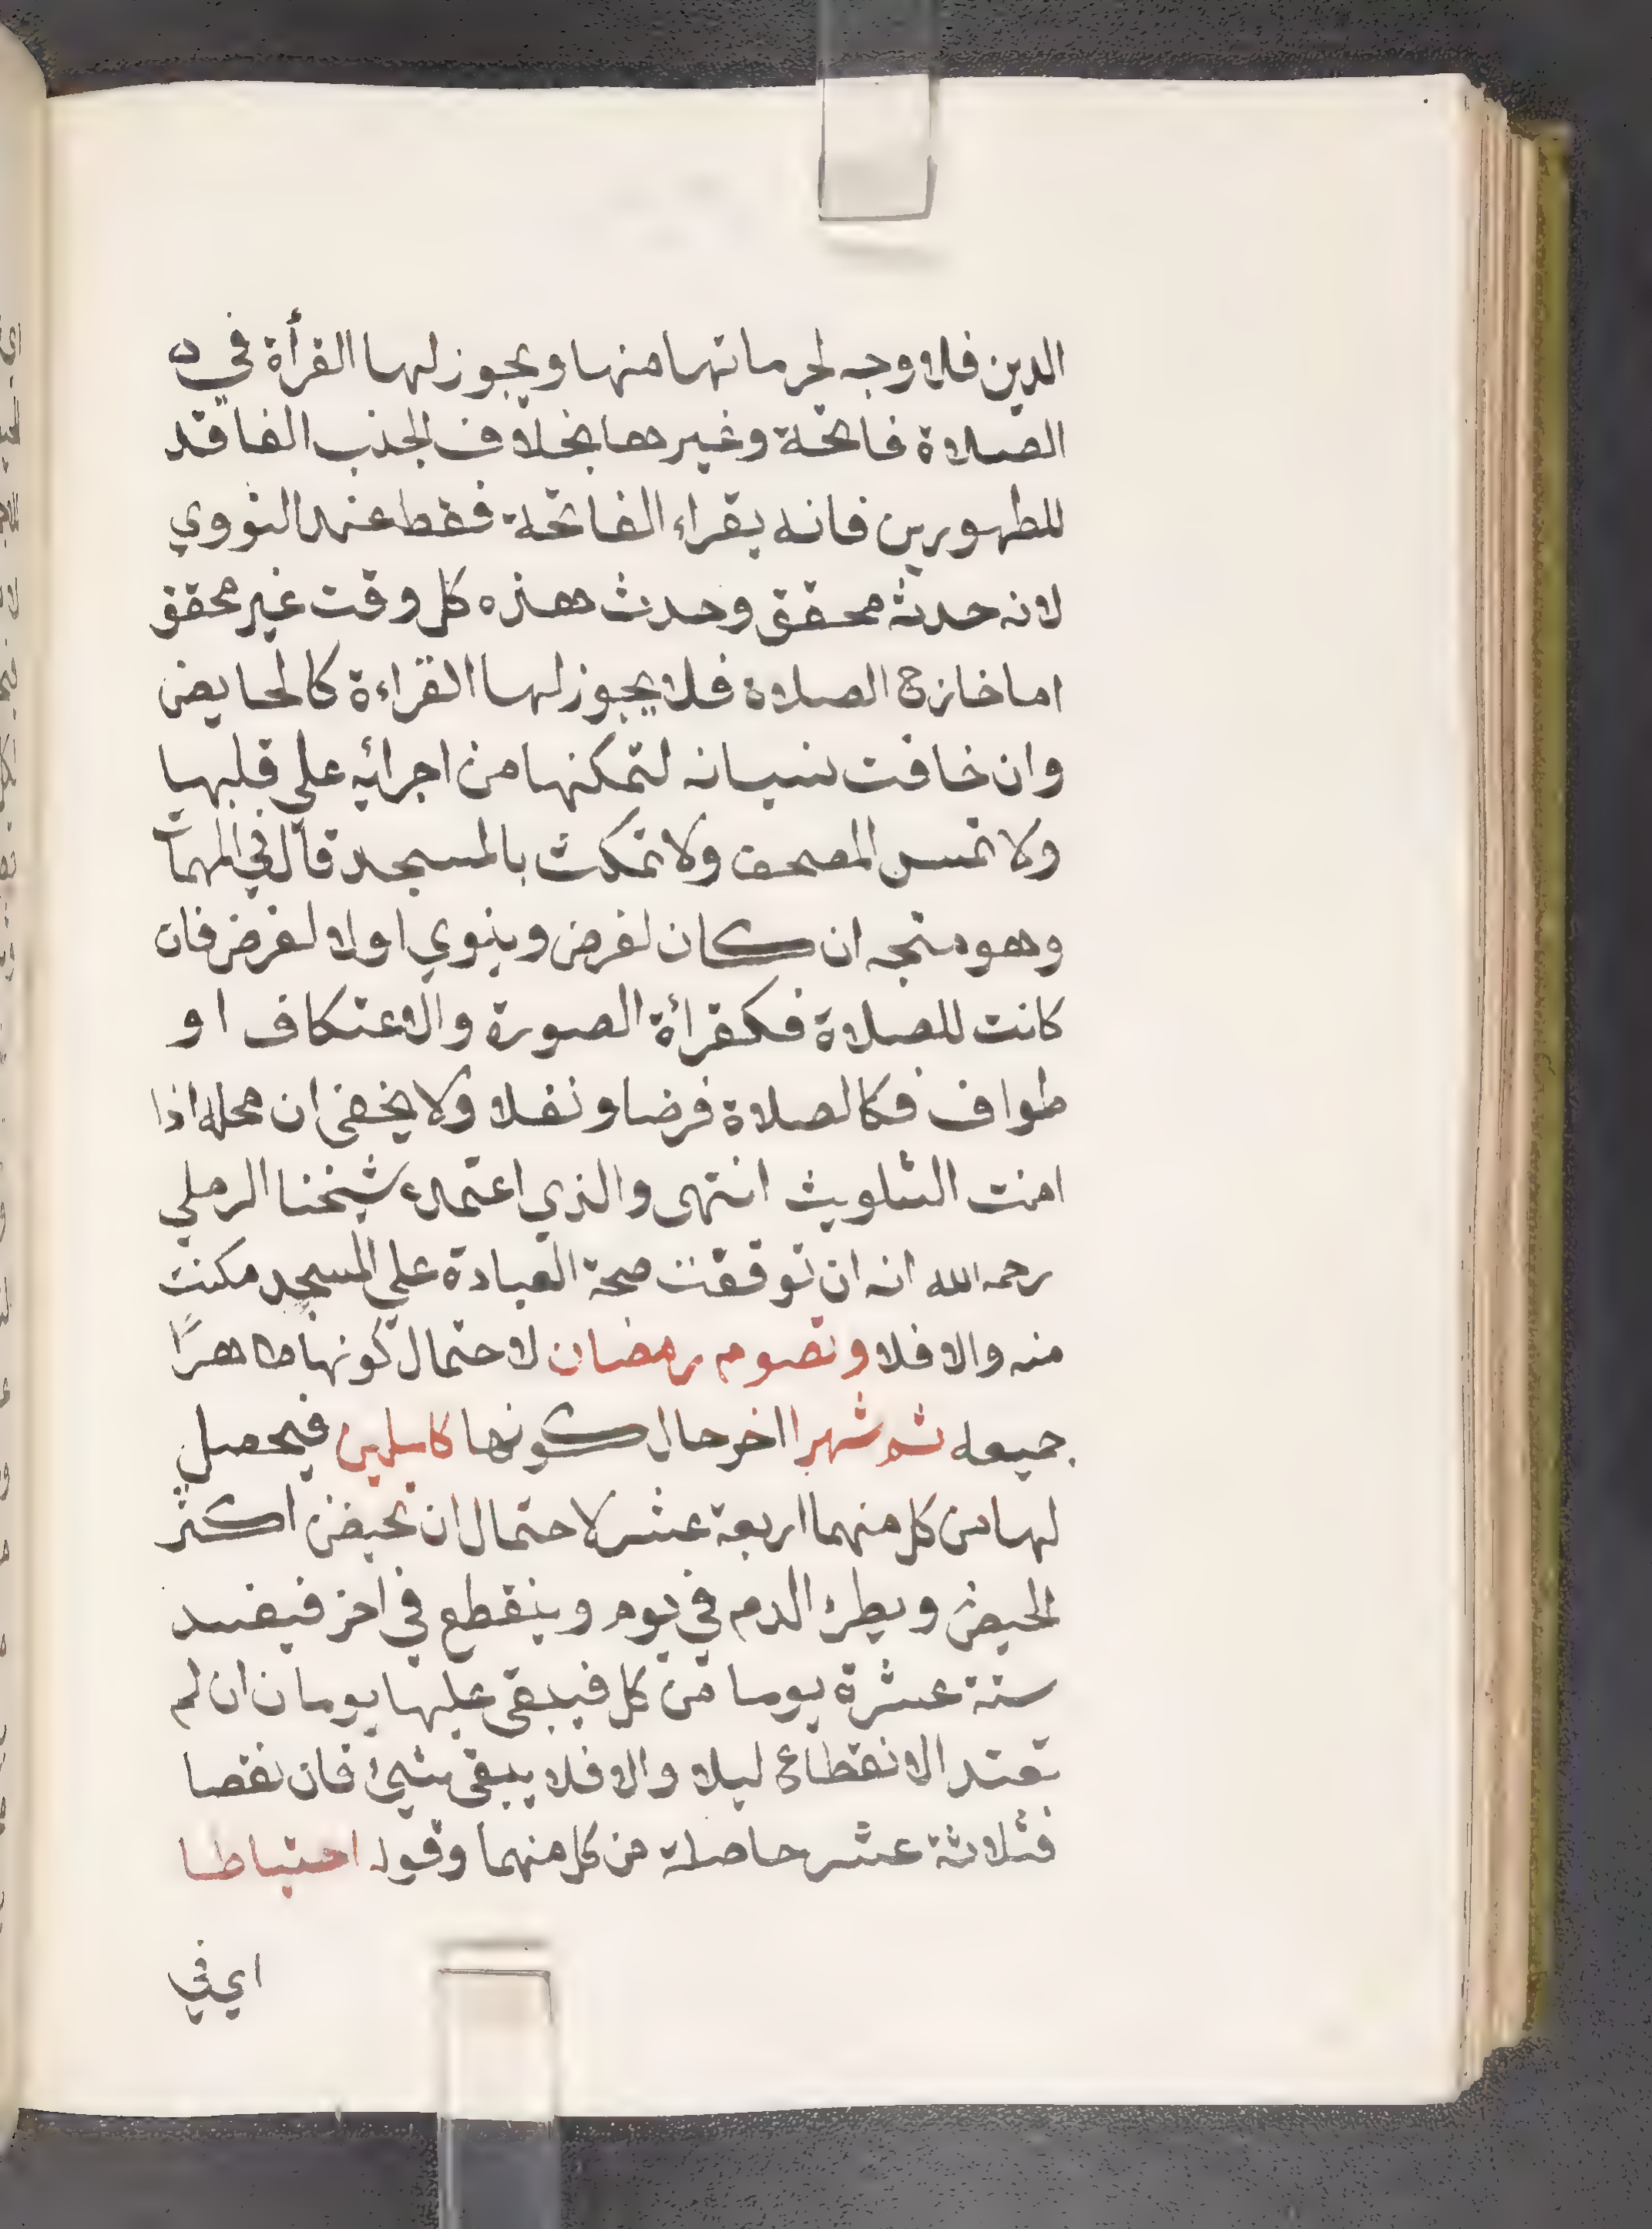 الدين فلا وجه لحرمانها منها ويجوز لها القرأة في
الصلاة فاتحة وغيرها بخلاف الجنب الفاقد
للطهورين فانه يقراء الفاتحة فقط عند النووي
لانه حدثه محقق وحدث هذه كل وقت غير محقق
اما خارج الصلاة فلا يجوز لها القراءة كالحايض
وان خافت نسيانه لتمكنها من اجرائه علي قلبها
ولا تمس المصحف ولا تمكث بالمسجد قال في المهمات
وهو متجه ان كان لغرض وينوي اولا لغرض فان
كانت للصلاة فكقرأة الصورة والاعتكاف او
طواف فكالصلاة فرضا ونفلا ولا يخفى ان محله اذا
امنت التلويث انتهى والذي اعتمده شيخنا الرملي
رحمه الله انه ان توقفت صحة العبادة علي المسجد مكنت
منه والا فلا وتصوم رمضان لاحتمال كونها طاهرًا
جميعه ثم شهرا اخر حال كونها كاملين فيحصل
لها من كل منهما اربعة عشر لاحتمال ان تحيض اكثر
الحيض ويطرء الدم في يوم وينقطع في اخر فيفسد
ستة عشرة يوما من كل فيبقى عليها يومان ان لم
تعتد الانقطاع ليلا والا فلا يبقى شيئ فان نقصا
فثلاثة عشر حاصلة من كل منهما وقوله احتياطا
اي في